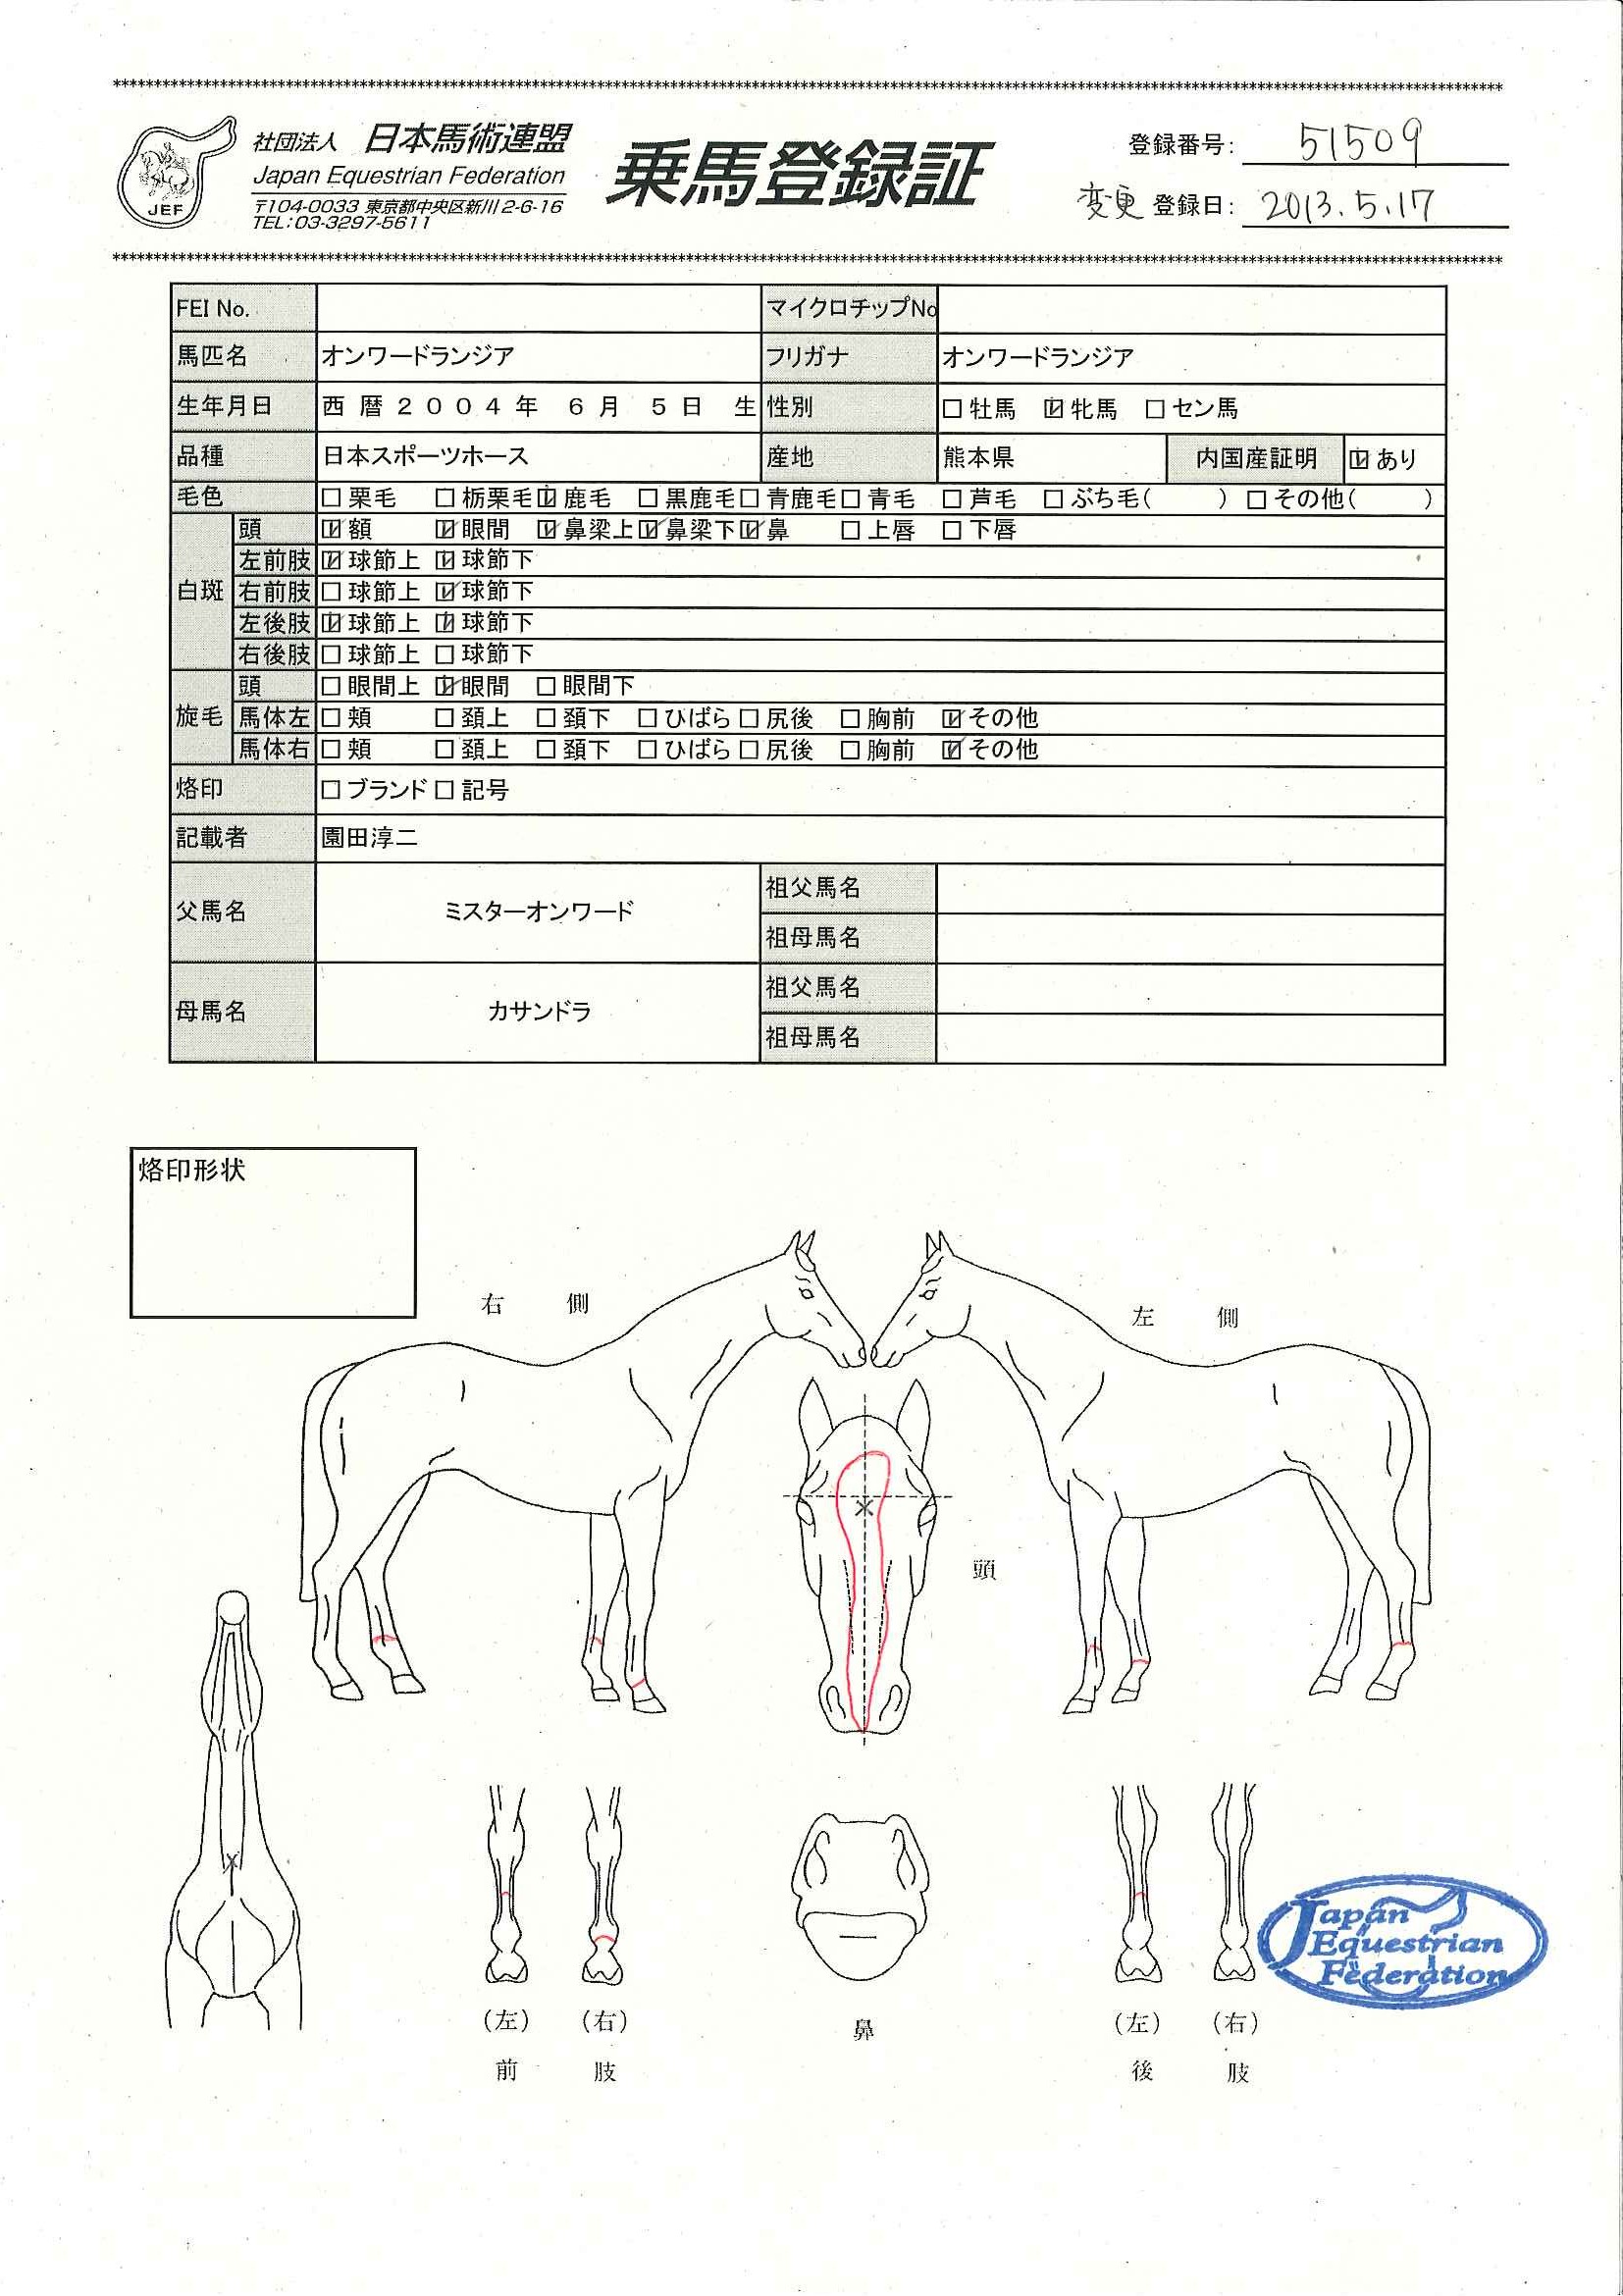 社団法人 日本馬術連盟
Japan Equestrian Federation
〒104-0033 東京都中央区新川2-6-16
TEL:03-3297-5611
JEF
乗馬登録証
登録番号: 51509
変更 登録日: 2013.5.17
FEI No. マイクロチップNo
馬匹名 オンワードランジア フリガナ オンワードランジア
生年月日 西暦2004年 6月 5日 生 性別 □牡馬 ☑牝馬 □セン馬
品種 日本スポーツホース 産地 熊本県 内国産証明 ☑あり
毛色 □栗毛 □栃栗毛 ☑鹿毛 □黒鹿毛 □青鹿毛 □青毛 □芦毛 □ぶち毛( ) □その他( )
白斑 頭 ☑額 ☑眼間 ☑鼻梁上 ☑鼻梁下 ☑鼻 □上唇 □下唇
左前肢 ☑球節上 ☑球節下
右前肢 □球節上 ☑球節下
左後肢 ☑球節上 ☑球節下
右後肢 □球節上 □球節下
旋毛 頭 □眼間上 ☑眼間 □眼間下
馬体左 □頬 □頚上 □頚下 □ひばら □尻後 □胸前 ☑その他
馬体右 □頬 □頚上 □頚下 □ひばら □尻後 □胸前 ☑その他
烙印 □ブランド □記号
記載者 園田淳二
父馬名 ミスターオンワード 祖父馬名
祖母馬名
母馬名 カサンドラ 祖父馬名
祖母馬名
烙印形状
右側
左側
頭
Japan
Equestrian
Federation
(左) (右)
前肢
鼻
(左) (右)
後肢